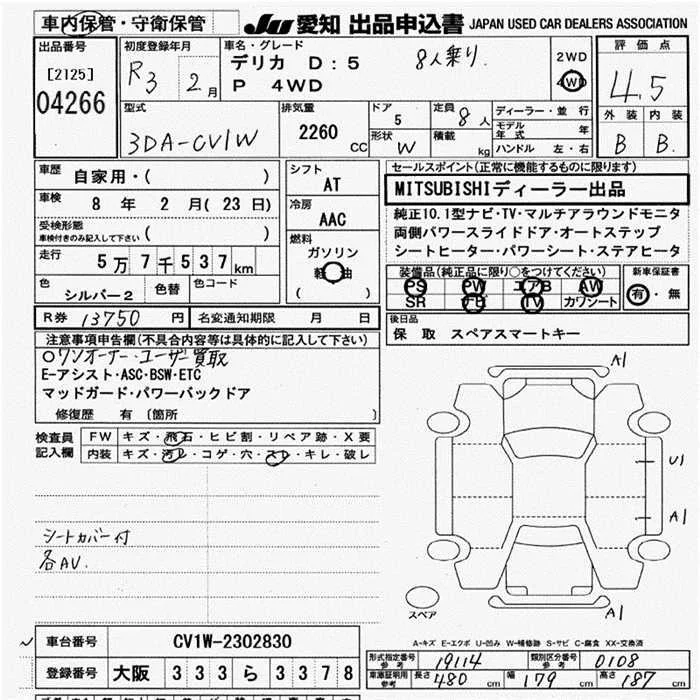 車内保管・守衛保管
JU 愛知 出品申込書 JAPAN USED CAR DEALERS ASSOCIATION
出品番号
[2125]
04266
初度登録年月
R3 2月
車名・グレード
デリカ D:5 8人乗り
P 4WD
2WD
4WD
評価点
4.5
外装 内装
B B.
型式
3DA-CV1W
排気量
2260 CC
ドア
5
形状 W
定員 8人
積載 kg
ディーラー・並行
モデル年式 年
ハンドル 左・右
車歴
自家用・( )
車検
8年 2月(23日)
受検形態
車検付きのみ記入して下さい ( )
走行
5万7千537km
色 シルバー2 色替 色コード
シフト
AT
冷房
AAC
燃料
ガソリン
軽油
( )
セールスポイント(正常に機能するものに限ります)
MITSUBISHIディーラー出品
純正10.1型ナビ・TV・マルチアラウンドモニタ
両側パワースライドドア・オートステップ
シートヒーター・パワーシート・ステアヒータ
装備品(純正品に限り○をつけてください)
PS PW エアB AW
SR ナビ TV カワシート
新車保証書
有・無
R券 13750円 名変通知期限 月 日
後日品
保 取 スペアスマートキー
注意事項申告欄(不具合内容等は具体的に記入して下さい)
○ワンオーナー・ユーザー買取
E-アシスト・ASC・BSW・ETC
マッドガード・パワーバックドア
修復歴 有 〔箇所 〕
検査員記入欄
FW キズ・飛石・ヒビ割・リペア跡・X要
内装 キズ・汚レ・コゲ・穴・スレ・キレ・破レ
シートカバー付
各AV.
A1
U1
A1
A1
スペア
A-キズ E-エクボ U-凹み W-補修跡 S-サビ C-腐食 XX-交換済
車台番号 CV1W-2302830
登録番号 大阪 333 ら 3378
形式指定番号 参考 19114 類別区分番号 参考 0108
車庫証明用 参考 長さ 480cm 幅 179cm 高さ 187cm